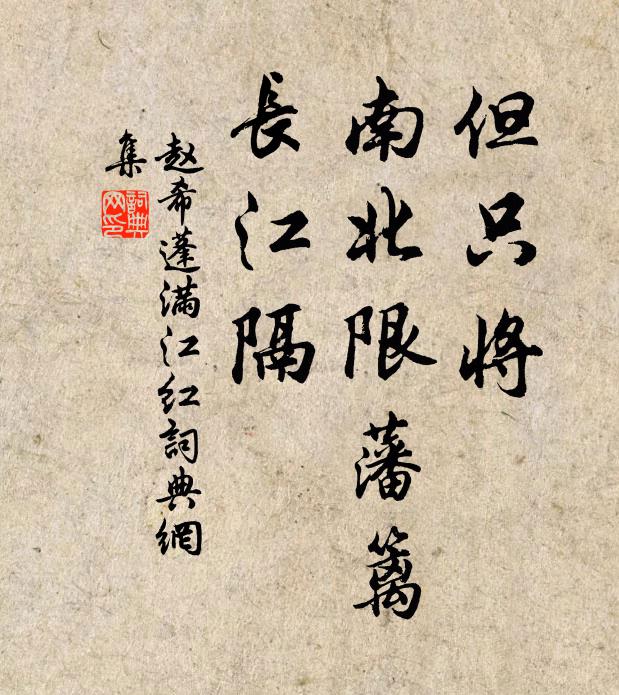 但只將
南北限藩篱
長江隔
赵希蓬满江红詞典網
集
詞典
网印